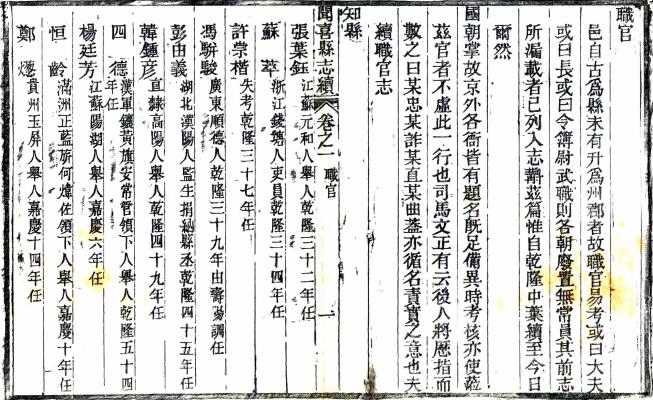 職官
邑自古爲縣未有升爲州郡者故職官易考或曰大夫
或曰長或曰令簿尉武職則各朝廢置無常員其前志
所漏載者已列入志薺茲篇惟自乾隆中葉續至今日
爾然
國朝掌故京外各衙皆有題名旣足備異時考核亦使蒞
茲官者不虛此一行也司馬文正有云後人將歷指而
數之曰某忠某詐某直某曲蓋亦循名責實之意也夫
續職官志
聞喜縣志續 卷之一 職官 一
知縣
張葉鈺 江蘇元和人舉人乾隆三十二年任
蘇萃 浙江錢塘人吏員乾隆三十四年任
許崇楷 失考乾隆三十七年任
馮骿駿 廣東順德人乾隆三十九年由壽陽調任
彭由義 湖北漢陽人監生捐納縣丞乾隆四十五年任
韓鍾彦 直隸高陽人舉人乾隆四十九年任
四德 漢軍鑲黃旗安常管領下人舉人乾隆五十四年任
楊廷芳 江蘇陽湖人舉人嘉慶六年任
恒齡 滿洲正藍旂何煒佐領下人舉人嘉慶十年任
鄭 貴州玉屏人舉人嘉慶十四年任